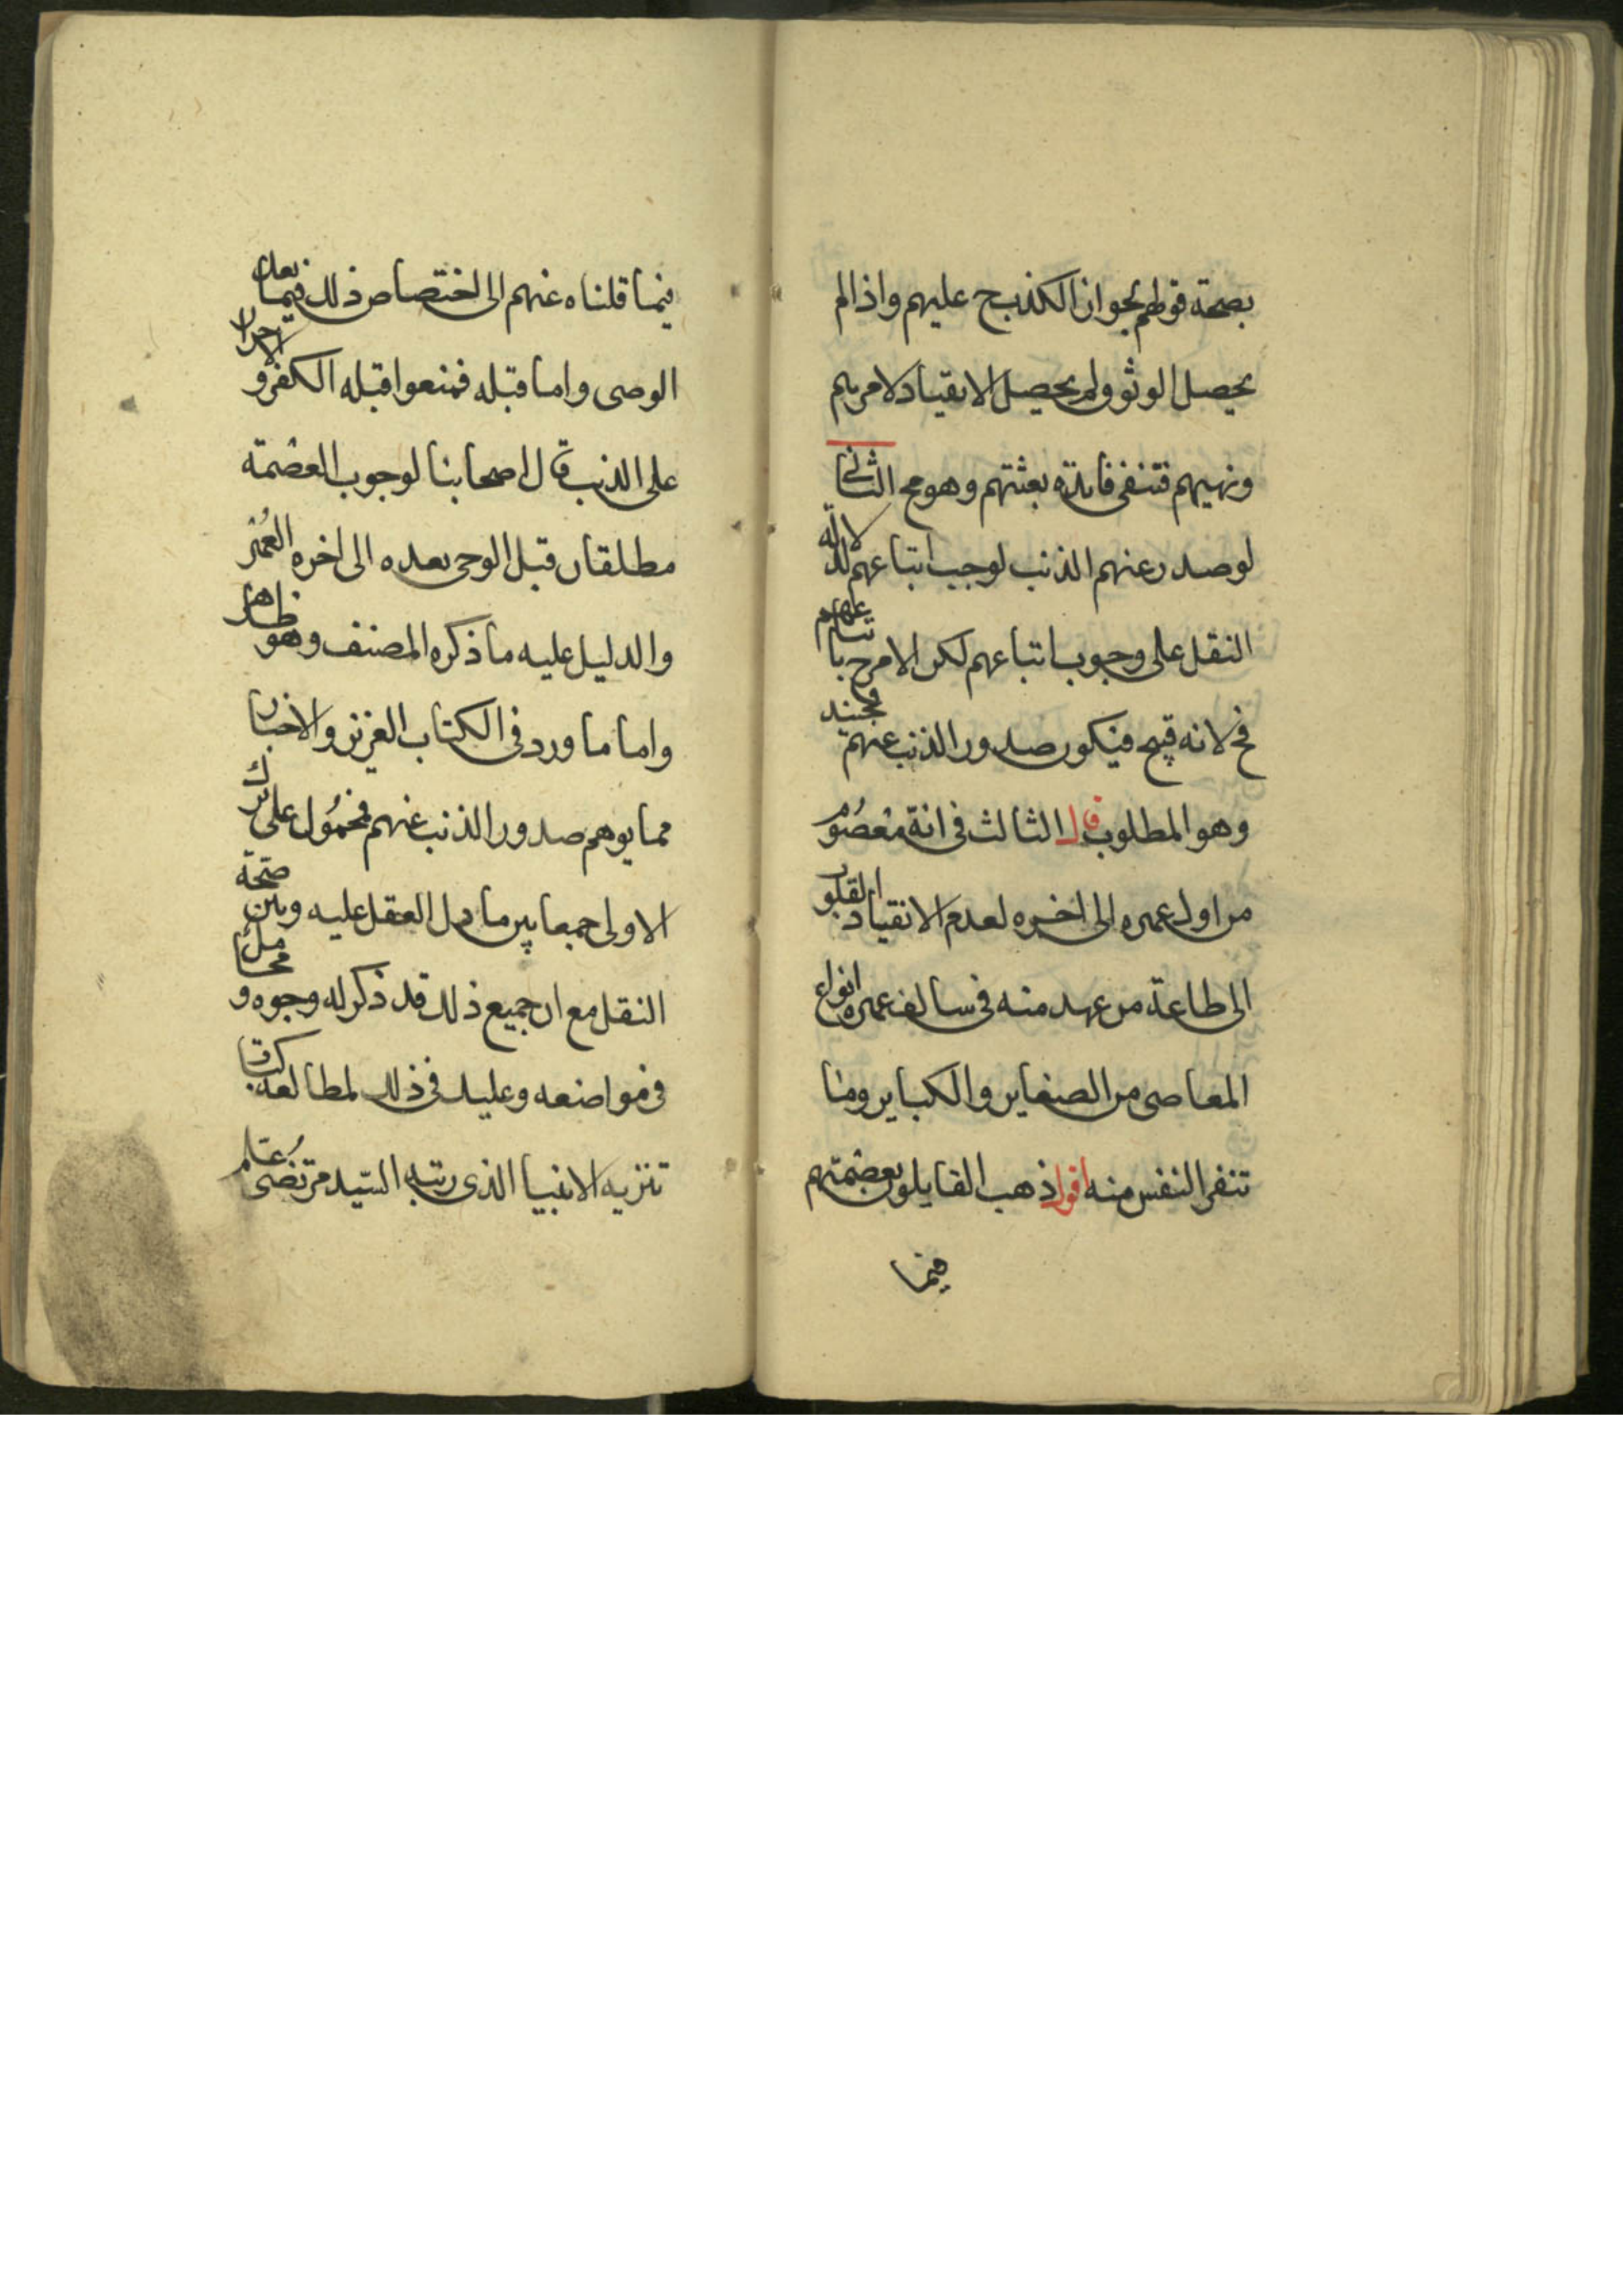 بصحة قولهم لجواز الكذب ح عليهم واذا لم
يحصل الوثوق لم يحصل الانقياد لامرهم
ونهيهم فتنفى فائدة بعثتهم وهو مح الثانى
لو صدر عنهم الذنب لوجب اتباعهم لدلالة
النقل على وجوب اتباعهم لكن الامر ح باتباعهم
مح لانه قبيح فيكون صدور الذنب عنهم
وهو المطلوب قال الثالث فى انه معصوم
من اول عمره الى اخره لعدم الانقياد القلوب
الى طاعة من عهد منه فى سالف عمره انواع
المعاصى من الصغاير والكباير وما
تنفر النفس منه اقول ذهب القايلون بعصمتهم
فيما
فيما قلناه عنهم الى اختصاص ذلك فيما بعد
الوحى واما قبله فمنعوا قبله الكفر و الاصرار
على الذنب قال اصحابنا لوجوب العصمة
مطلقا قبل الوحى وبعده الى اخره العمر
والدليل عليه ما ذكره المصنف وهو ظاهر
واما ما ورد فى الكتاب العزيز والاخبار
مما يوهم صدور الذنب عنهم فمحمول على ترك
الاولى جمعا بين ما دل العقل عليه وبين صحة
النقل مع ان جميع ذلك قد ذكر له وجوه و محامل
فى مواضعه وعليك فى ذلك لمطالعة كتاب
تنزيه الانبيا الذى رتبه السيد مرتضى علم